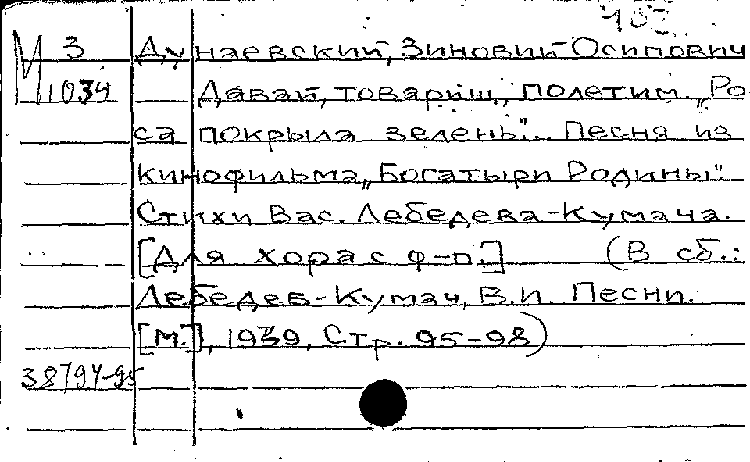 М 3 Дунаевский, Зиновий Осипович
1034 Давай, товарищ, полетим. „Ро-
са покрыла зелень". Песня из
кинофильма „Богатыри Родины".
Стихи Вас. Лебедева-Кумача.
[Для хора с ф-п.] (В сб.:
Лебедев-Кумач, В.И. Песни.
[М.], 1939, Стр. 95-98)
38794-95